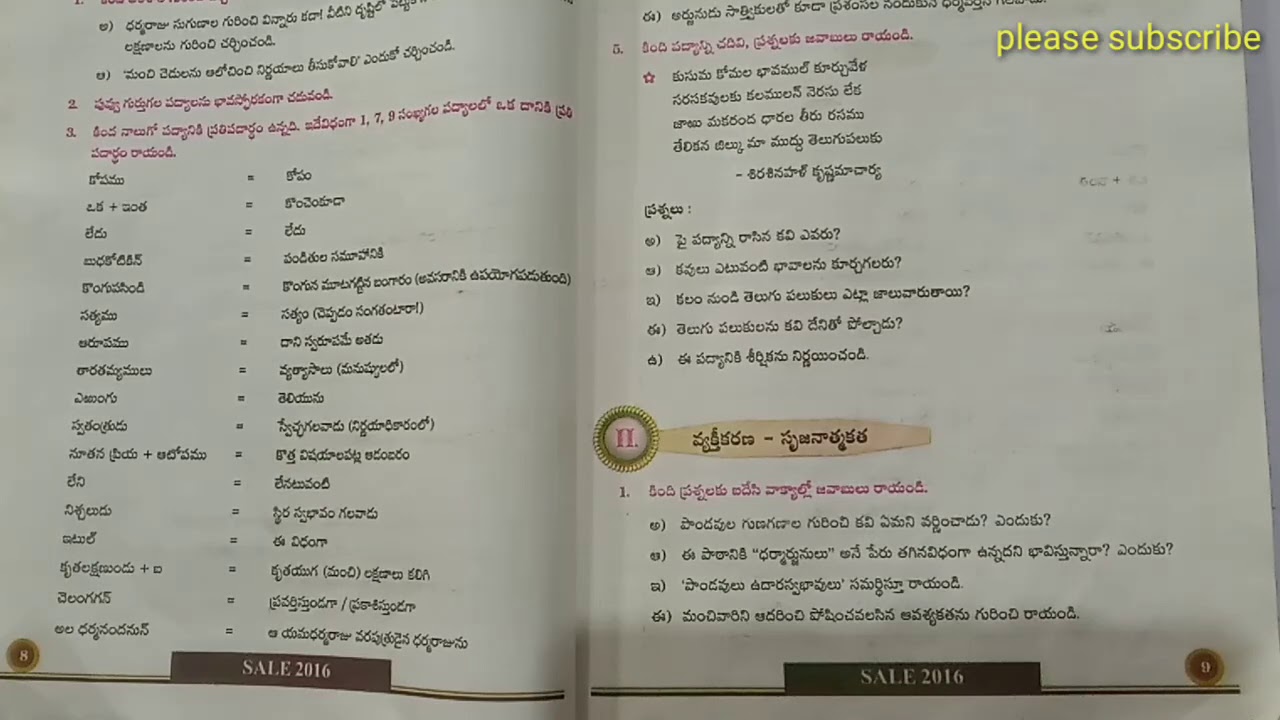 అ) ధర్మరాజు సుగుణాల గురించి విన్నారు కదా! వీటిని దృష్టిలో
లక్షణాలను గురించి చర్చించండి.
ఆ) 'మంచి చెడులను ఆలోచించి నిర్ణయాలు తీసుకోవాలి' ఎందుకో చర్చించండి.
2. పువ్వు గుర్తుగల పద్యాలను భావస్ఫోరకంగా చదువండి.
3. కింద నాలుగో పద్యానికి ప్రతిపదార్థం ఉన్నది. ఇదేవిధంగా 1, 7, 9 సంఖ్యగల పద్యాలలో ఒక దానికి ప్రతి
పదార్థం రాయండి.
కోపము = కోపం
ఒక + ఇంత = కొంచెంకూడా
లేదు = లేదు
బుధకోటికిన్ = పండితుల సమూహానికి
కొంగుపసిండి = కొంగున మూటగట్టిన బంగారం (అవసరానికి ఉపయోగపడుతుంది)
సత్యము = సత్యం (చెప్పడం సంగతంటారా!)
ఆరూపము = దాని స్వరూపమే అతడు
తారతమ్యములు = వ్యత్యాసాలు (మనుష్యులలో)
ఎఱుంగు = తెలియును
స్వతంత్రుడు = స్వేచ్ఛగలవాడు (నిర్ణయాధికారంలో)
నూతన ప్రియ + ఆటోపము = కొత్త విషయాలపట్ల ఆడంబరం
లేని = లేనటువంటి
నిశ్చలుడు = స్థిర స్వభావం గలవాడు
ఇటుల్ = ఈ విధంగా
కృతలక్షణుండు + ఐ = కృతయుగ (మంచి) లక్షణాలు కలిగి
చెలంగగన్ = ప్రవర్తిస్తుండగా / ప్రకాశిస్తుండగా
అల ధర్మనందనున్ = ఆ యమధర్మరాజు వరపుత్రుడైన ధర్మరాజును
8
SALE 2016
please subscribe
ఈ) అర్జునుడు సాత్త్వికులతో కూడా ప్రశంసల నందుకునే
5. కింది పద్యాన్ని చదివి, ప్రశ్నలకు జవాబులు రాయండి.
కుసుమ కోమల భావముల్ కూర్చువేళ
సరసకవులకు కలములన్ నెరసు లేక
జాఱు మకరంద ధారల తీరు రసము
తేలికన జిల్కు మా ముద్దు తెలుగుపలుకు
- శిరశినహళ్ కృష్ణమాచార్య
ప్రశ్నలు :
అ) పై పద్యాన్ని రాసిన కవి ఎవరు?
ఆ) కవులు ఎటువంటి భావాలను కూర్చగలరు?
ఇ) కలం నుండి తెలుగు పలుకులు ఎట్లా జాలువారుతాయి?
ఈ) తెలుగు పలుకులను కవి దేనితో పోల్చాడు?
ఉ) ఈ పద్యానికి శీర్షికను నిర్ణయించండి.
II. వ్యక్తీకరణ - సృజనాత్మకత
1. కింది ప్రశ్నలకు ఐదేసి వాక్యాల్లో జవాబులు రాయండి.
అ) పాండవుల గుణగణాల గురించి కవి ఏమని వర్ణించాడు? ఎందుకు?
ఆ) ఈ పాఠానికి "ధర్మార్జునులు" అనే పేరు తగినవిధంగా ఉన్నదని భావిస్తున్నారా? ఎందుకు?
ఇ) 'పాండవులు ఉదారస్వభావులు' సమర్థిస్తూ రాయండి.
ఈ) మంచివారిని ఆదరించి పోషించవలసిన ఆవశ్యకతను గురించి రాయండి.
SALE 2016
9